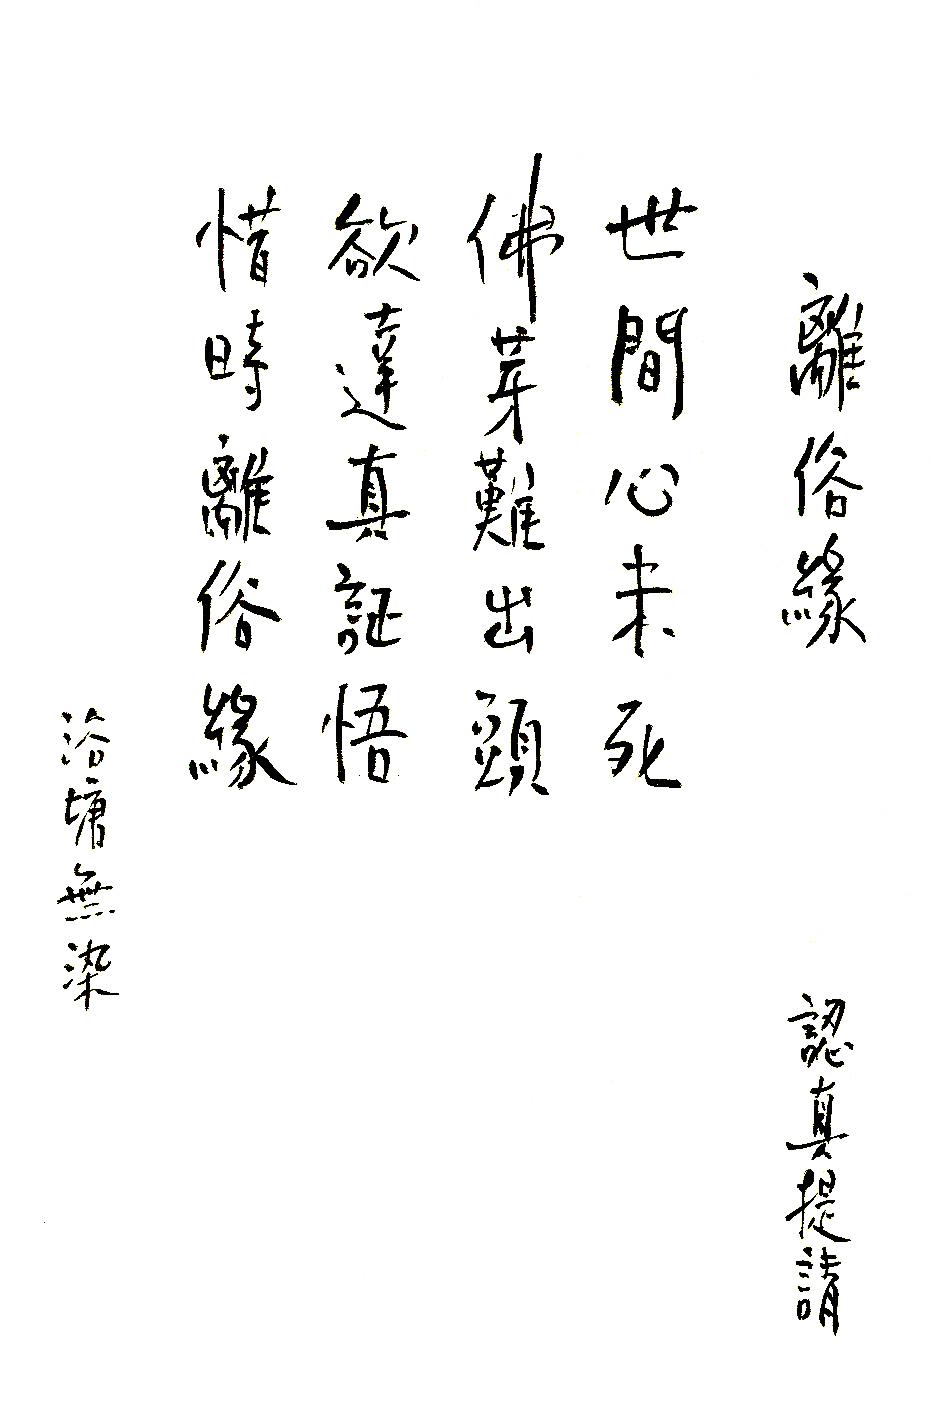 離俗緣
認真提請
世間心未死
佛芽難出頭
欲達真証悟
惜時離俗緣
浴塘無染